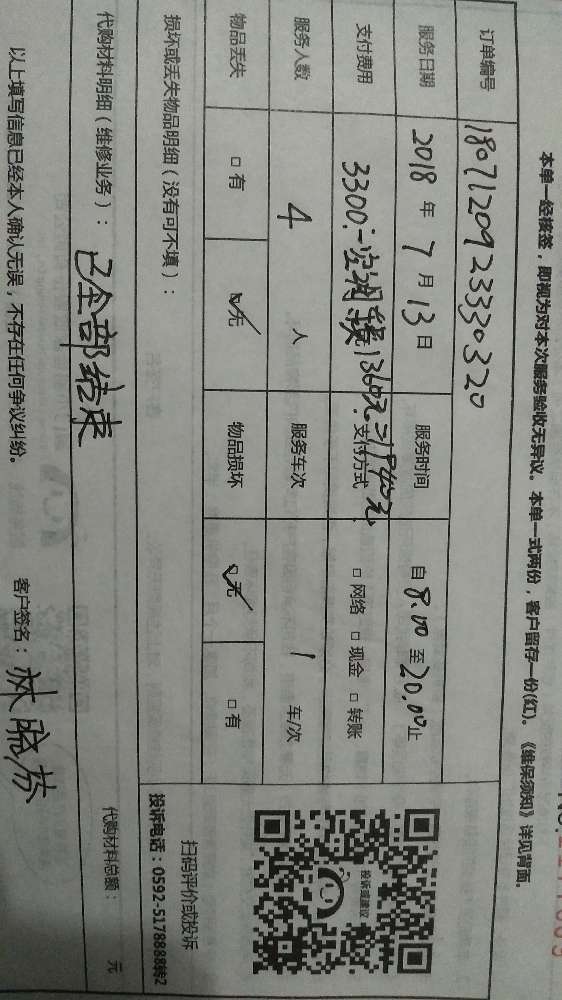 本单一经核签，即视为对本次服务验收无异议。本单一式两份，客户留存一份(红)。《维保须知》详见背面。
订单编号 1807120923330320
服务日期 2018 年 7 月 13 日 服务时间 自 8.00 至 20.00 止
支付费用 3300.- 1360元 = 1840元 支付方式 □ 网络 □ 现金 □ 转账
服务人数 4 人 服务车次 1 车/次
物品丢失 □ 有 ☑ 无 物品损坏 ☑ 无 □ 有
损坏或丢失物品明细（没有可不填）：
扫码评价或投诉
投诉电话：0592-5178888转2
投诉或建议
代购材料明细（维修业务）： 已全部结束 代购材料总额： 元
以上填写信息已经本人确认无误，不存在任何争议纠纷。 客户签名：林晓芬